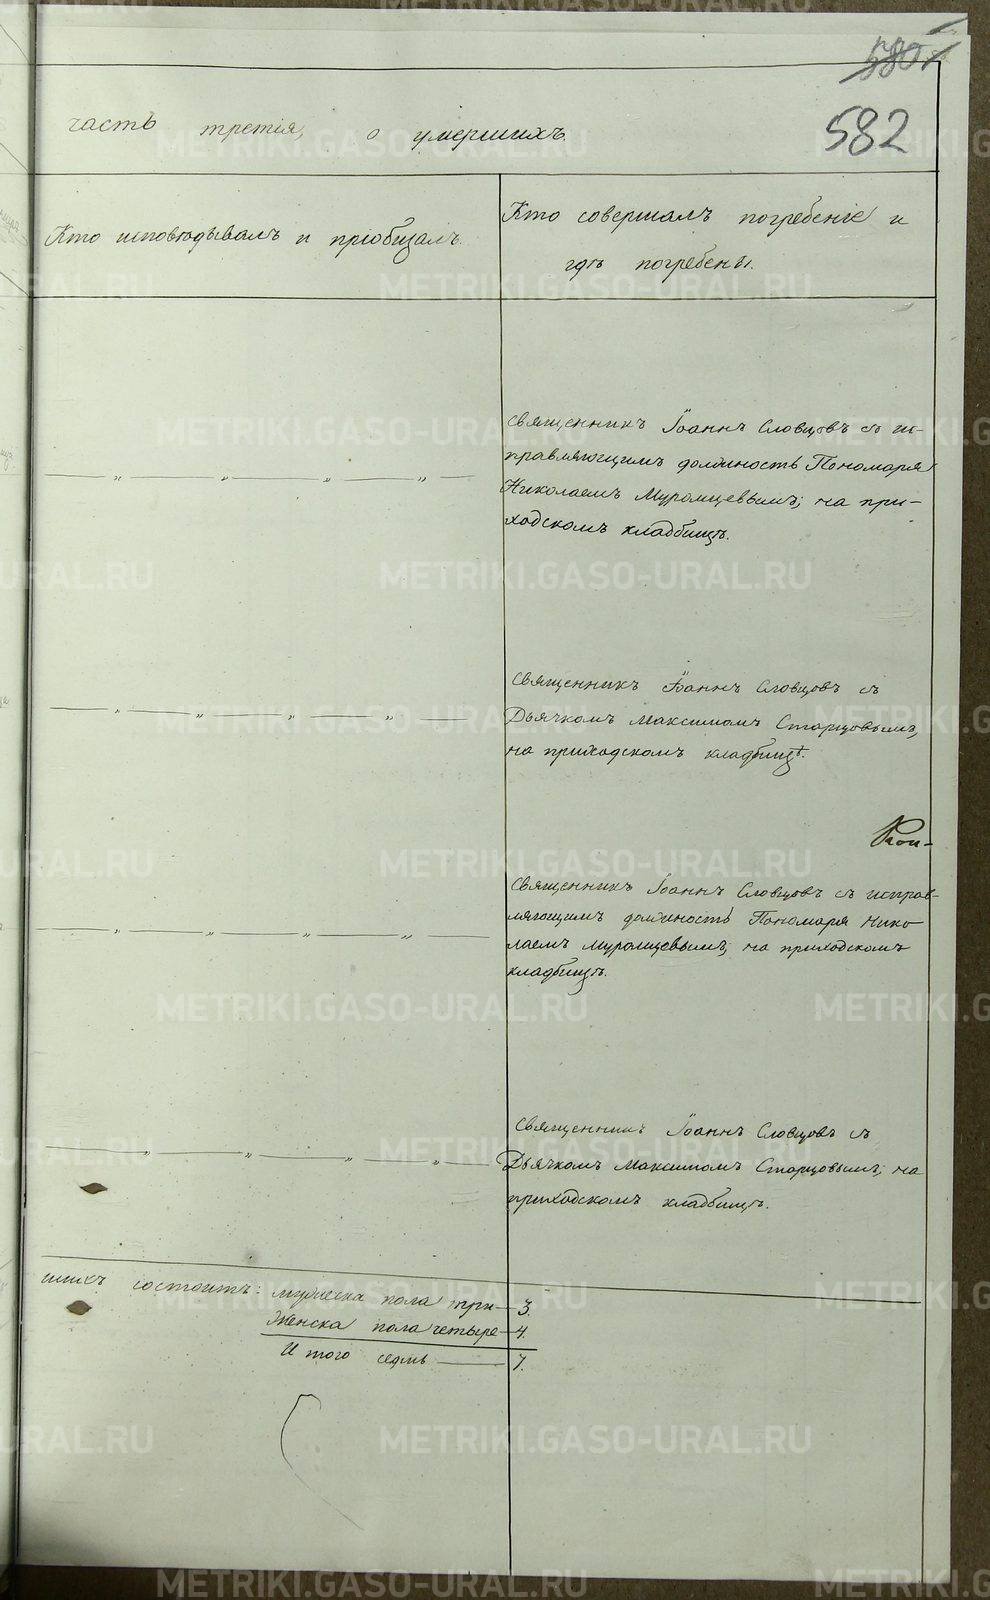 580
582
часть третія, о умершихъ.
Кто исповѣдывалъ и пріобщалъ.
Кто совершалъ погребеніе и
гдѣ погребены.
Священникъ Іоаннъ Словцовъ съ ис-
правляющимъ должность Пономаря
Николаемъ Муромцевымъ; на при-
ходскомъ кладбищѣ.
Священникъ Іоаннъ Словцовъ съ
Дьячкомъ Максимомъ Старцовымъ,
на приходскомъ кладбищѣ.
Священникъ Іоаннъ Словцовъ съ исправ-
ляющимъ должность Пономаря Нико-
лаемъ Муромцевымъ; на приходскомъ
кладбищѣ.
Священникъ Іоаннъ Словцовъ съ
Дьячкомъ Максимомъ Старцовымъ; на
приходскомъ кладбищѣ.
шихъ состоитъ: мужеска пола три — 3.
Женска пола четыре — 4.
И того седмь — 7.
METRIKI.GASO-URAL.RU